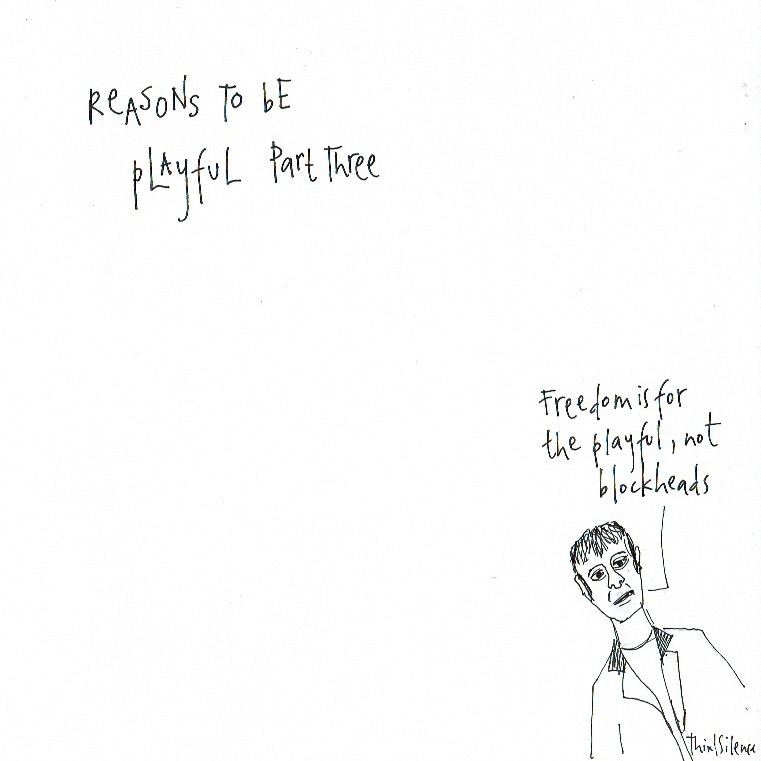 ReASoNs To bE
pLAyfuL Part Three
Freedom is for
the playful, not
blockheads
Think!Silence